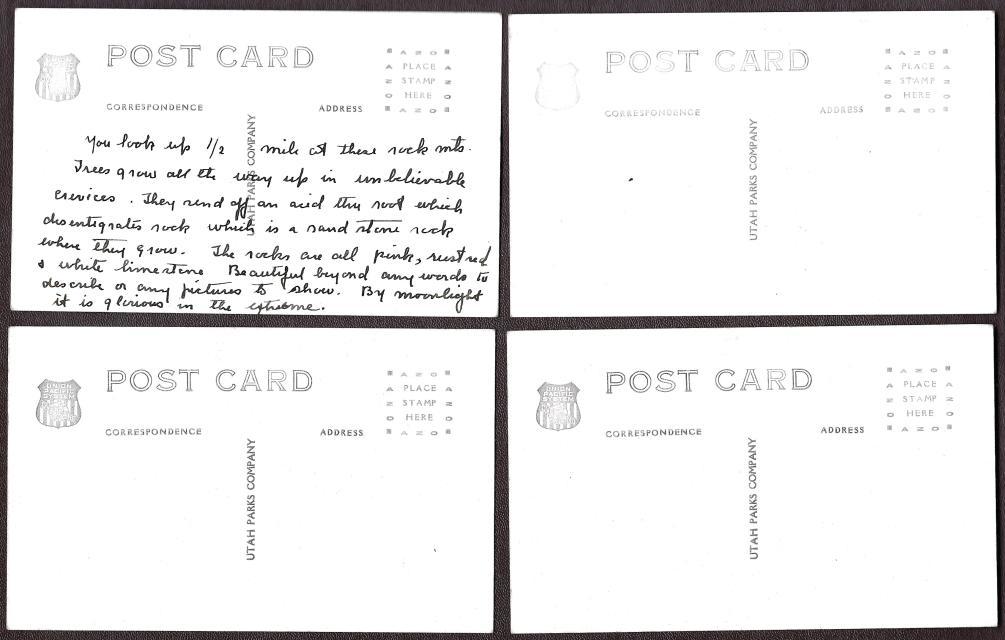 POST CARD
AZO
A PLACE A
Z STAMP Z
O HERE O
AZO
CORRESPONDENCE
ADDRESS
UTAH PARKS COMPANY
You look up 1/2 mile at these rock mts.
Trees grow all the way up in unbelievable
crevices. They send off an acid thru root which
disentigrates rock which is a sand stone rock
where they grow. The rocks are all pink, rust red
& white limestone Beautiful beyond any words to
describe or any pictures to show. By moonlight
it is glorious in the extreme.
POST CARD
AZO
A PLACE A
Z STAMP Z
O HERE O
AZO
CORRESPONDENCE
ADDRESS
UTAH PARKS COMPANY
UNION
PACIFIC
SYSTEM
POST CARD
AZO
A PLACE A
Z STAMP Z
O HERE O
AZO
CORRESPONDENCE
ADDRESS
UTAH PARKS COMPANY
UNION
PACIFIC
SYSTEM
POST CARD
AZO
A PLACE A
Z STAMP Z
O HERE O
AZO
CORRESPONDENCE
ADDRESS
UTAH PARKS COMPANY